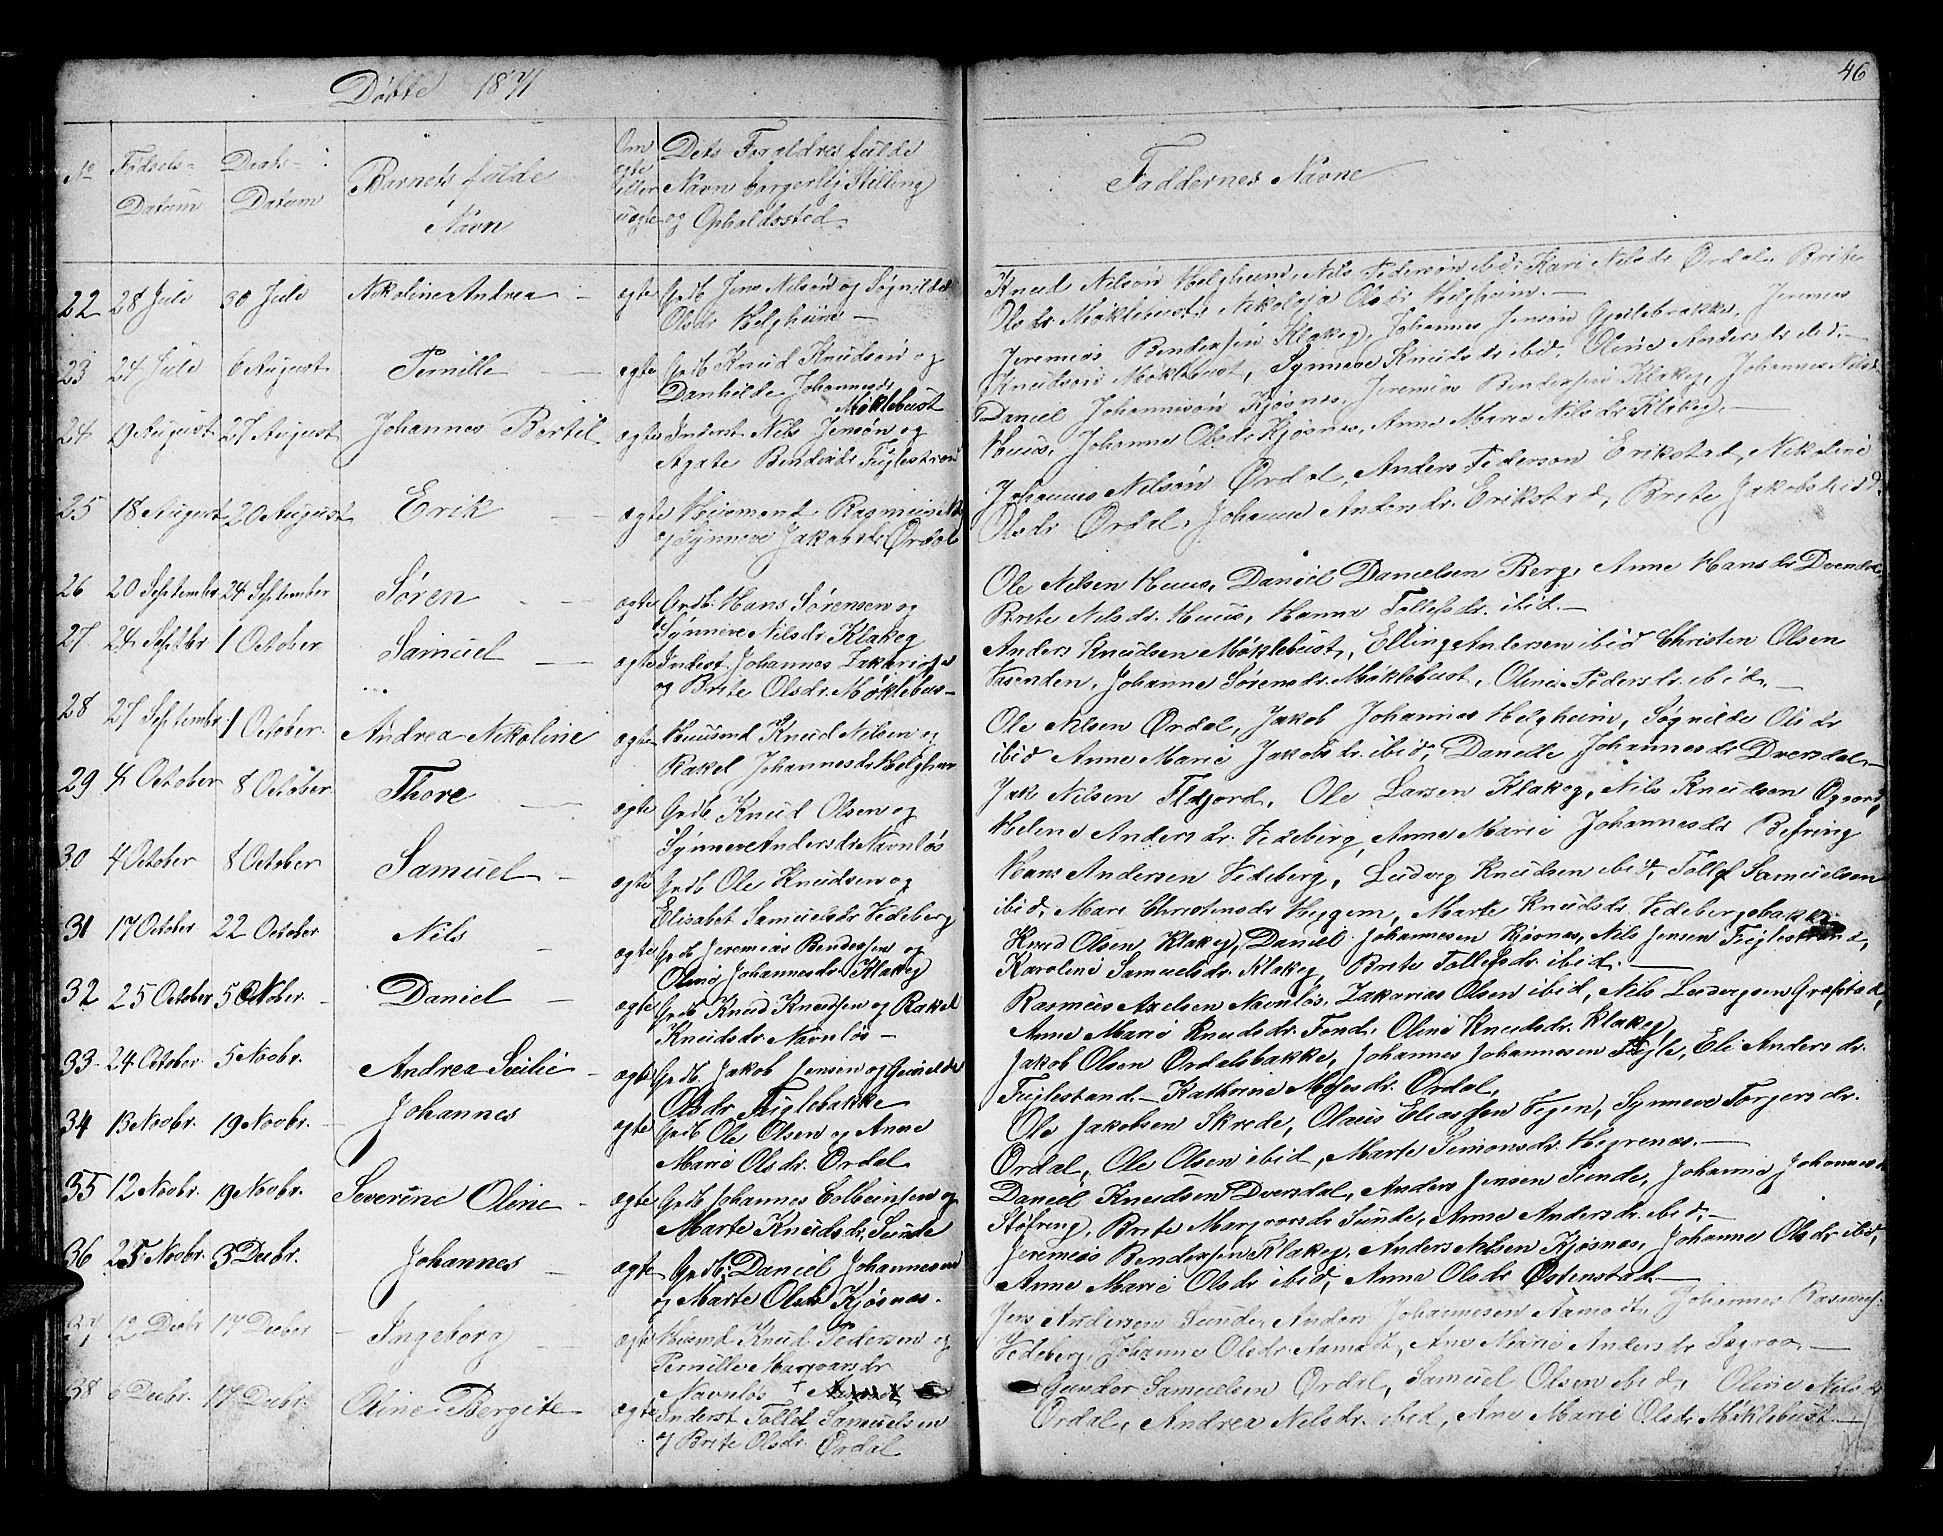 Døbte 1871
46
No
Fødsels-
Datum
Daabs-
Datum
Barnets fulde
Navn
Om
ægte
eller
uægte
Dets Forældres fulde
Navn borgerlig Stilling
og Opholdssted
Faddernes Navne
22 28 Juli 30 Juli Nikoline Andrea ægte Grdb. Jens Nilsøn og Søgnilde
Olsdr Helgheim
Knud Nilsøn Helgheim, Nils Pedersøn ibid, Kari Nilsdr Ørdal, Brite
Olsdr Møklebust, Nikolaja Olsdr Helgheim.
23 24 Juli 6 August Pernille ægte Grdb Knud Knudsøn og
Danhilde Johannesdr
Møklebust
Jeremias Bendixsen Klakeg, Johannes Jensøn Jeremias
Knudsøn Møklebust, Synneve Knudsdr ibid, Oline Andersdr ibid.
24 19 August 27 August Johannes Bertil ægte Inderst Nils Jensøn og
Agate Bendixdr Fuglestrand
Daniel Johannesøn Kjøsnes, Jeremias Bendixsøn Klakeg, Johannes Nilsøn
Huus, Johanne Olsdr Kjøsnes, Anne Marie Nilsdr Klakeg.
25 18 August 20 August Erik ægte Huusmand Rasmus
og Synneve Jakobsdr Ørdal
Johannes Nilsøn Ørdal, Anders Pederson Erikstad, Nikoline
Olsdr Ørdal, Johanne Andersdr Erikstad, Brite Jakobsdr ibid.
26 20 September 24 September Søren ægte Grdb. Hans Sørensen og
Synneve Nilsdr Klakeg
Ole Nilsen Huus, Daniel Danielsen Berg, Anne Hansdr
Brite Nilsdr. Huus, Hanna Tollefsdr. ibid.
27 24 Septbr 1 October Samuel ægte Inderst Johannes Zakariasen
og Brite Olsdr. Møklebus-
Anders Knudsen Møklebust, Elling Andersen ibid Christen Olsen
Vasenden, Johanne Sørensdr. Møklebust, Oline Pedersdr. ibid.
28 27 Septembr 1 October Andrea Nikoline ægte Huusmd Knud Nilsen og
Rakel Johannesdr Helgheim
Ole Nilsen Ørdal, Jakob Johannes Helgheim, Søgnilde Olsdr
ibid Anne Marie Jakobsdr ibid, Danelle Johannesdr Dversdal.
29 4 October 8 October Thore ægte Grdb Knud Olsen og
Synneve Andersdr Navnløs
Jak Nilsen Fldjord, Ole Larsen Klakeg, Nils Knudsen
Helene Andersdr. Vedeberg, Anne Marie Johannesdr Befring
30 4 October 8 October Samuel ægte Grdb Ole Knudsen og
Elisabet Samuelsdr Vedeberg
Hans Andersen Vedeberg, Ludvig Knudsen ibid, Tollef Samuelsen
ibid, Mari Christensdr Marte Knudsdr. Vedebergsbakke
31 17 October 22 October Nils ægte Grdb Jeremias Bendixsen og
Oline Johannesdr Klakeg
Knud Olsen Klakeg, Daniel Johannesen Kjøsnes, Nils Jensen Fuglestrand,
Karoline Samuelsdr. Klakeg Brite Tollefsdr. ibid.
32 25 October 5 Daniel ægte Grdb Knud Knudsen og Rakel
Knudsdr Navnløs
Rasmus Axelsen Navnløs, Zakarias Olsen ibid, Nils Ludvigsen Grøpstad,
Anne Marie Knudsdr. Fond. Oline Knudsdr. Klakeg
33 24 October 5 Novbr. Andrea Seilie ægte Grdb. Jakob Jensen og Gunilde
Olsdr Fuglebakke
Jakob Olsen Ørdalsbakke, Johannes Johannesen Eli Andersdr.
Fuglestand, Kathrine Mosesdr. Ørdal,
34 13 Novbr. 19 Novbr. Johannes ægte Grdb Ole Olsen og Anne
Marie Olsdr. Ørdal
Ole Jakobsen Skrede, Olaus Eliassen Synneve Torgersdr.
Ørdal, Ole Olsen ibid, Marte Simonsdr. Hegrenes.
35 12 Novbr. 19 Novbr. Severine Oline ægte Grdb Johannes Colbeinsen og
Marte Knudsdr. Sunde
Daniel Knudsen Dversdal, Anders Jensen Sunde, Johanne Johannesdr
Støfring, Brite Margvarsdr Sunde, Anne Andersdr. ibid.
36 25 Novbr. 3 Decbr. Johannes ægte Grdb. Daniel Johannesen
og Marte Olsdr Kjøsnes.
Jeremias Bendixsen Klakeg, Anders Nilsen Kjøsnes, Johanne Olsdr ibid,
Anne Marie Olsdr ibid, Anne Olsdr Østenstad.
37 12 Decbr 17 Decbr Ingeborg ægte Huusmd Knud Pedersen og
Pernille Margvarsdr
Navnløs
Jens Andersen Sunde, Anders Johannesen Aamodt, Johannes Rasmus.
Vedeberg, Johanne Olsdr. Aamodt, Ane Marie Andersdr Sægrov.
38 6 Decbr. 17 Decbr. Oline Bergite ægte Inderst Tollef Samuelsen
og Brite Olsdr. Ørdal
Gunder Samuelsen Ørdal, Samuel Olsen ibid, Oline Nilsdr
Ørdal, Andrea Nilsdr. ibid, Ane Marie Olsdr Møklebust.